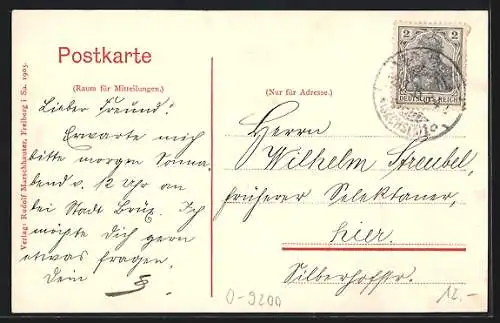 Postkarte
(Raum für Mitteilungen.)
Lieber Freund!
Erwarte mich
bitte morgen Sonna-
bend v. 12 Uhr an
bei Stadt Brüx. Ich
möchte Dich gern
etwas fragen.
Dein
(Nur für Adresse.)
Herrn
Wilhelm Streubel,
früherer Selektaner,
hier.
Silberhofstr.
2 2
DEUTSCHES REICH
Verlag: Rudolf Marschhauser, Freiberg i Sa. 1905.
0-9200
12.-